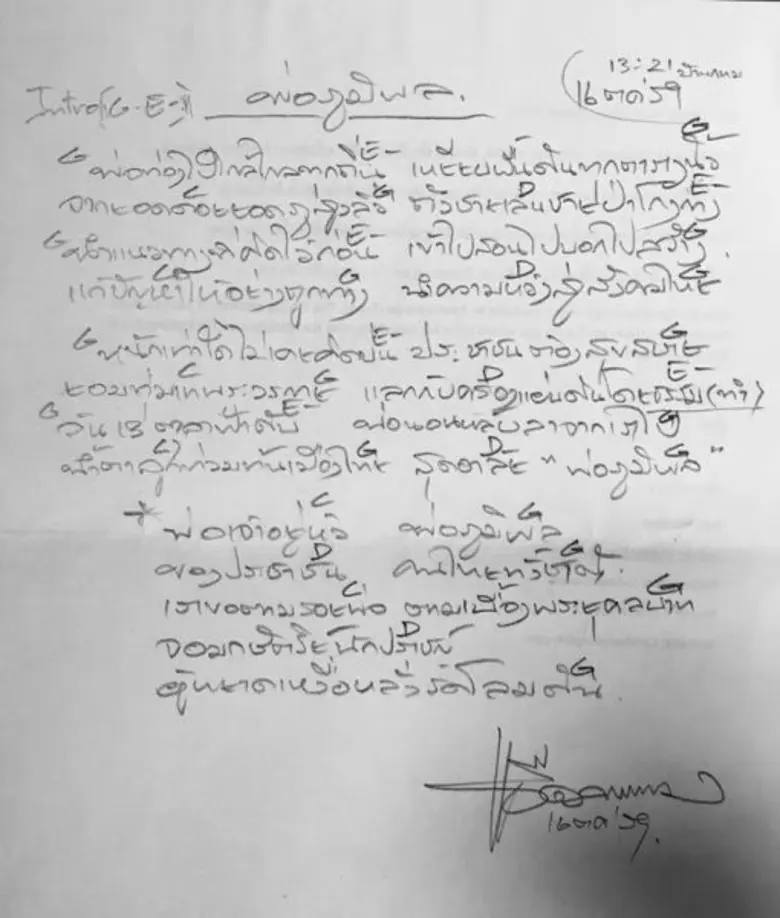 13:21 บ้านกทม
Intro(G-E-) พ่อภูมิพล. 16 ตค'59
พ่อท่องไปไกลไกลจากถิ่น เหยียบพื้นดินทุกตารางนิ้ว
จากยอดดอยยอดภูสูงลิ่ว ตัวชายเส้นชายป่าโกงกาง
นำแนวทางที่คิดไว้ก่อน เข้าไปสอนไปบอกไปสร้าง
แก้ปัญหาให้อย่างถูกทาง นำความหวังสู่สังคมไทย
หนักเท่าใดไม่เคยคิดบ่น ประชาชนต้องสุขสบาย
ยอมทุ่มเทพระวรกาย แลกกับครองแผ่นดินโดยธรรม (ทำ)
วันที่ 13 ตุลาฟ้าดับ พ่อนอนหลับลาจากเราไป
น้ำตาลูกท่วมท้นเมืองไทย สุดอาลัย "พ่อภูมิพล"
* พ่อเจ้าอยู่หัว พ่อภูมิพล
ของประชาชน คนไทยทั่วชาติ
เราขอตามรอยพ่อ ตามเบื้องพระยุคลบาท
จอมกษัตริย์นักปราชญ์
ผู้หยาดเหงื่อหลั่งรดโลมดิน
16 ตค'59